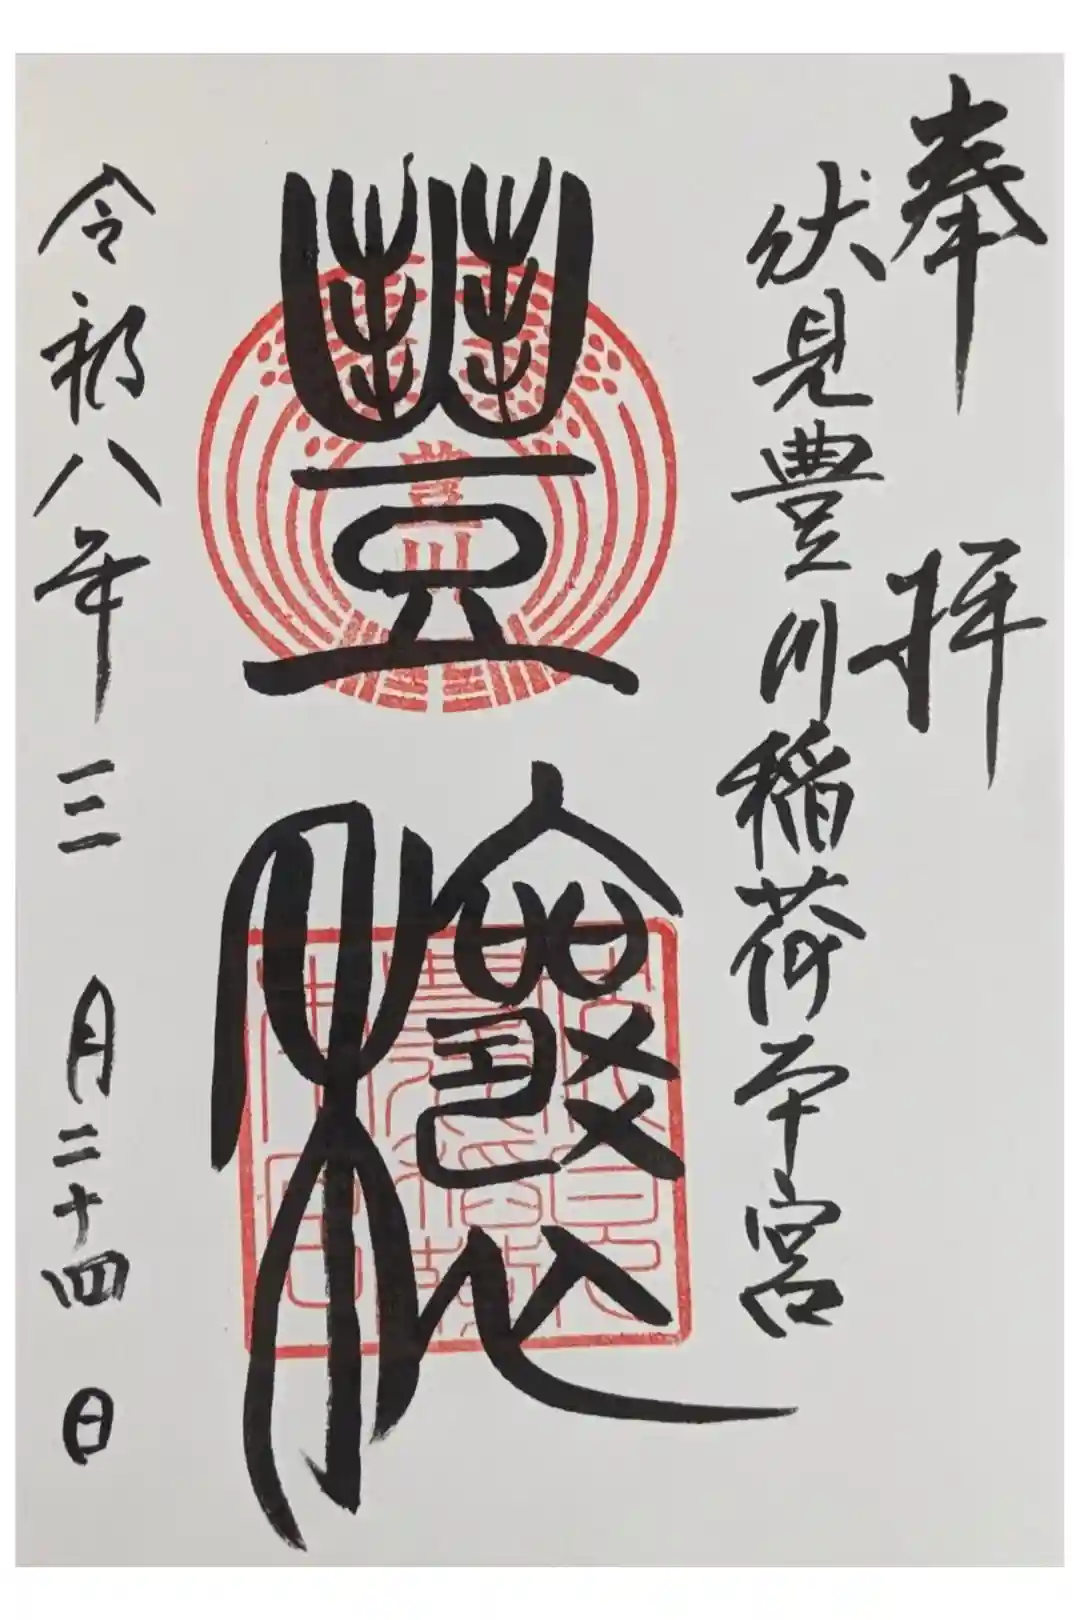 奉拝
伏見豊川稲荷本宮
豐穰
令和八年三月二十四日